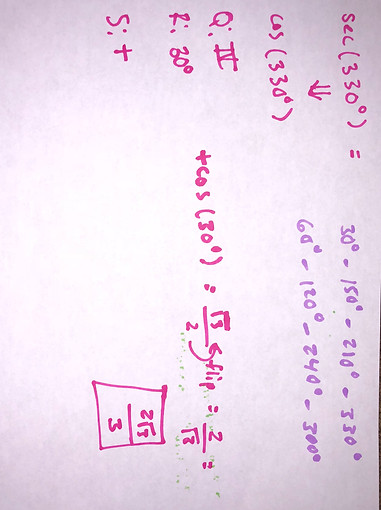 sec(330°) =
⇓
cos(330°)
30° - 150° - 210° - 330°
60° - 120° - 240° - 300°
Q: IV
R: 30°
S: +
+cos(30°) = √3/2 flip = 2/√3 =
2√3/3